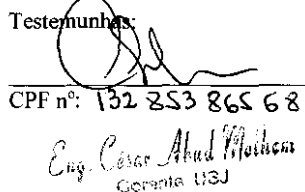 Testemunhas:
CPF nº: 132 853 865 68
Eng. César Abud
Gerente USJ